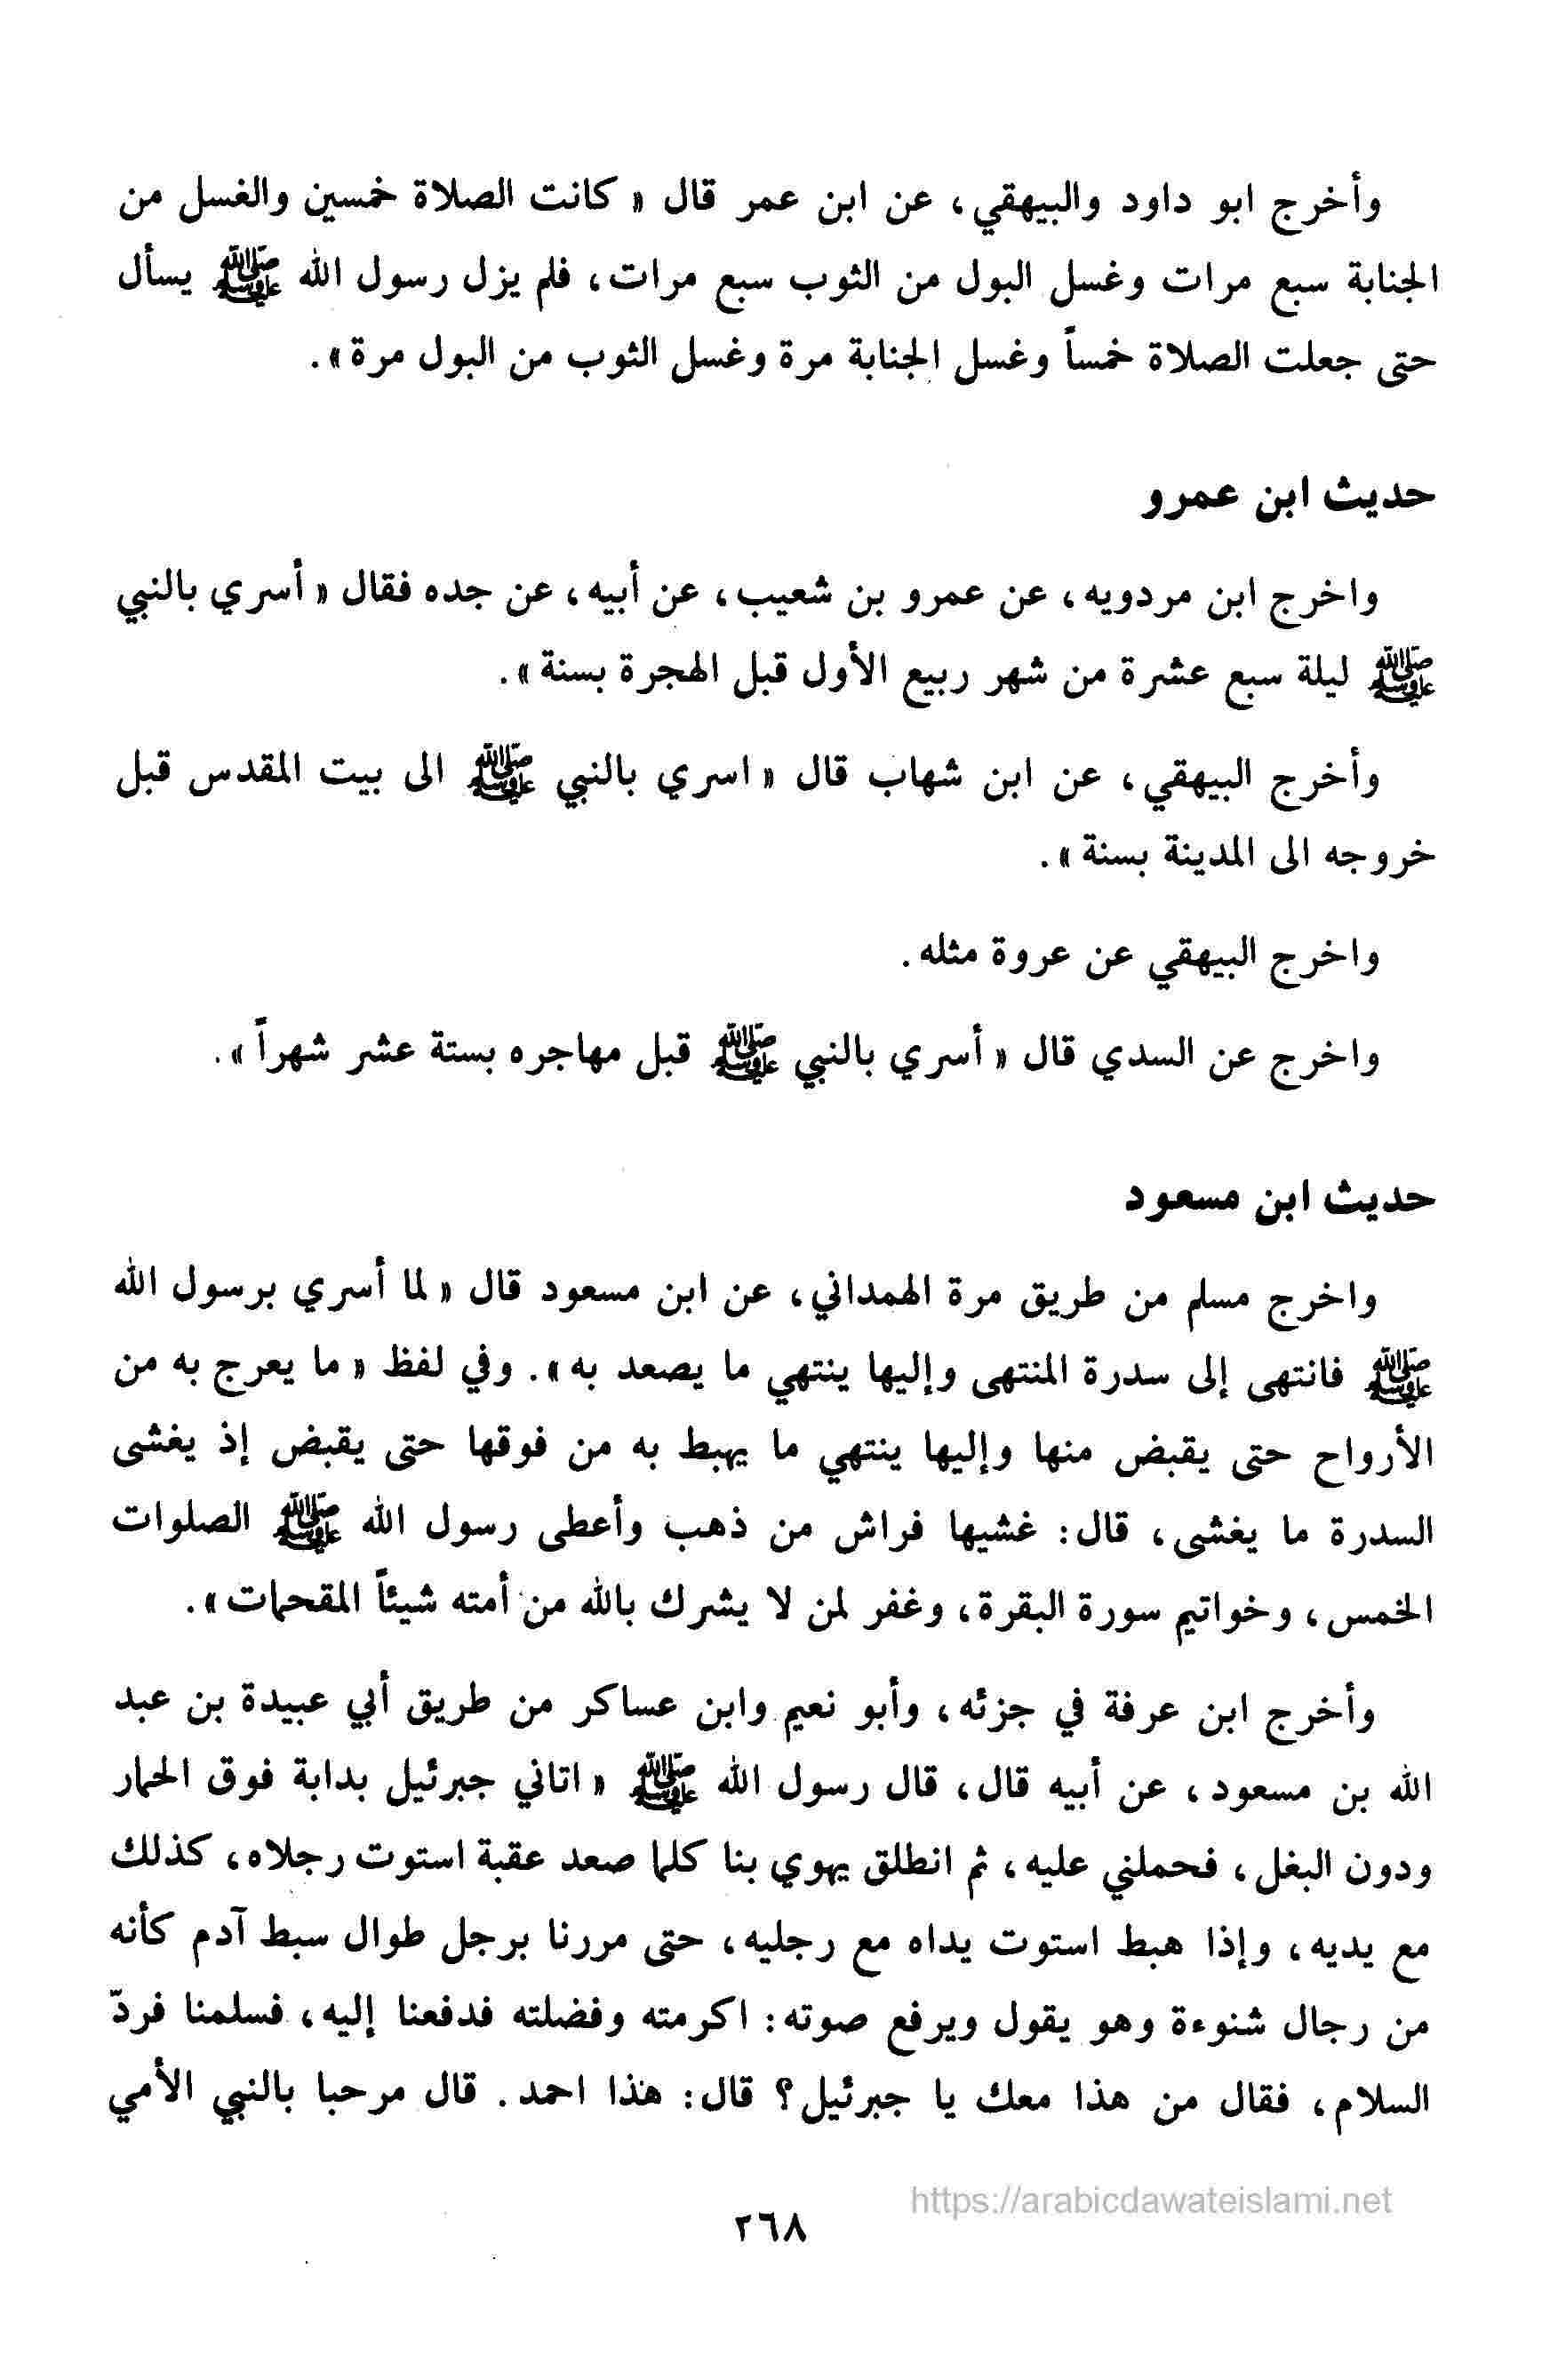 وأخرج ابو داود والبيهقي، عن ابن عمر قال « كانت الصلاة خمسين والغسل من
الجنابة سبع مرات وغسل البول من الثوب سبع مرات، فلم يزل رسول الله ﷺ يسأل
حتى جعلت الصلاة خمساً وغسل الجنابة مرة وغسل الثوب من البول مرة ».
حديث ابن عمرو
واخرج ابن مردويه، عن عمرو بن شعيب، عن أبيه، عن جده فقال « أسري بالنبي
ﷺ ليلة سبع عشرة من شهر ربيع الأول قبل الهجرة بسنة ».
وأخرج البيهقي، عن ابن شهاب قال « اسري بالنبي ﷺ الى بيت المقدس قبل
خروجه الى المدينة بسنة ».
واخرج البيهقي عن عروة مثله.
واخرج عن السدي قال « أسري بالنبي ﷺ قبل مهاجره بستة عشر شهراً ».
حديث ابن مسعود
واخرج مسلم من طريق مرة الهمداني، عن ابن مسعود قال « لما أسري برسول الله
ﷺ فانتهى إلى سدرة المنتهى وإليها ينتهي ما يصعد به ». وفي لفظ « ما يعرج به من
الأرواح حتى يقبض منها وإليها ينتهي ما يهبط به من فوقها حتى يقبض إذ يغشى
السدرة ما يغشى، قال: غشيها فراش من ذهب وأعطى رسول الله ﷺ الصلوات
الخمس، وخواتيم سورة البقرة، وغفر لمن لا يشرك بالله من أمته شيئاً المقحمات ».
وأخرج ابن عرفة في جزئه، وأبو نعيم وابن عساكر من طريق أبي عبيدة بن عبد
الله بن مسعود، عن أبيه قال، قال رسول الله ﷺ « اتاني جبرئيل بدابة فوق الحمار
ودون البغل، فحملني عليه، ثم انطلق يهوي بنا كلما صعد عقبة استوت رجلاه، كذلك
مع يديه، وإذا هبط استوت يداه مع رجليه، حتى مررنا برجل طوال سبط آدم كأنه
من رجال شنوءة وهو يقول ويرفع صوته: اكرمته وفضلته فدفعنا إليه، فسلمنا فردّ
السلام، فقال من هذا معك يا جبرئيل؟ قال: هذا احمد. قال مرحبا بالنبي الأمي
https://arabicdawateislami.net
٢٦٨